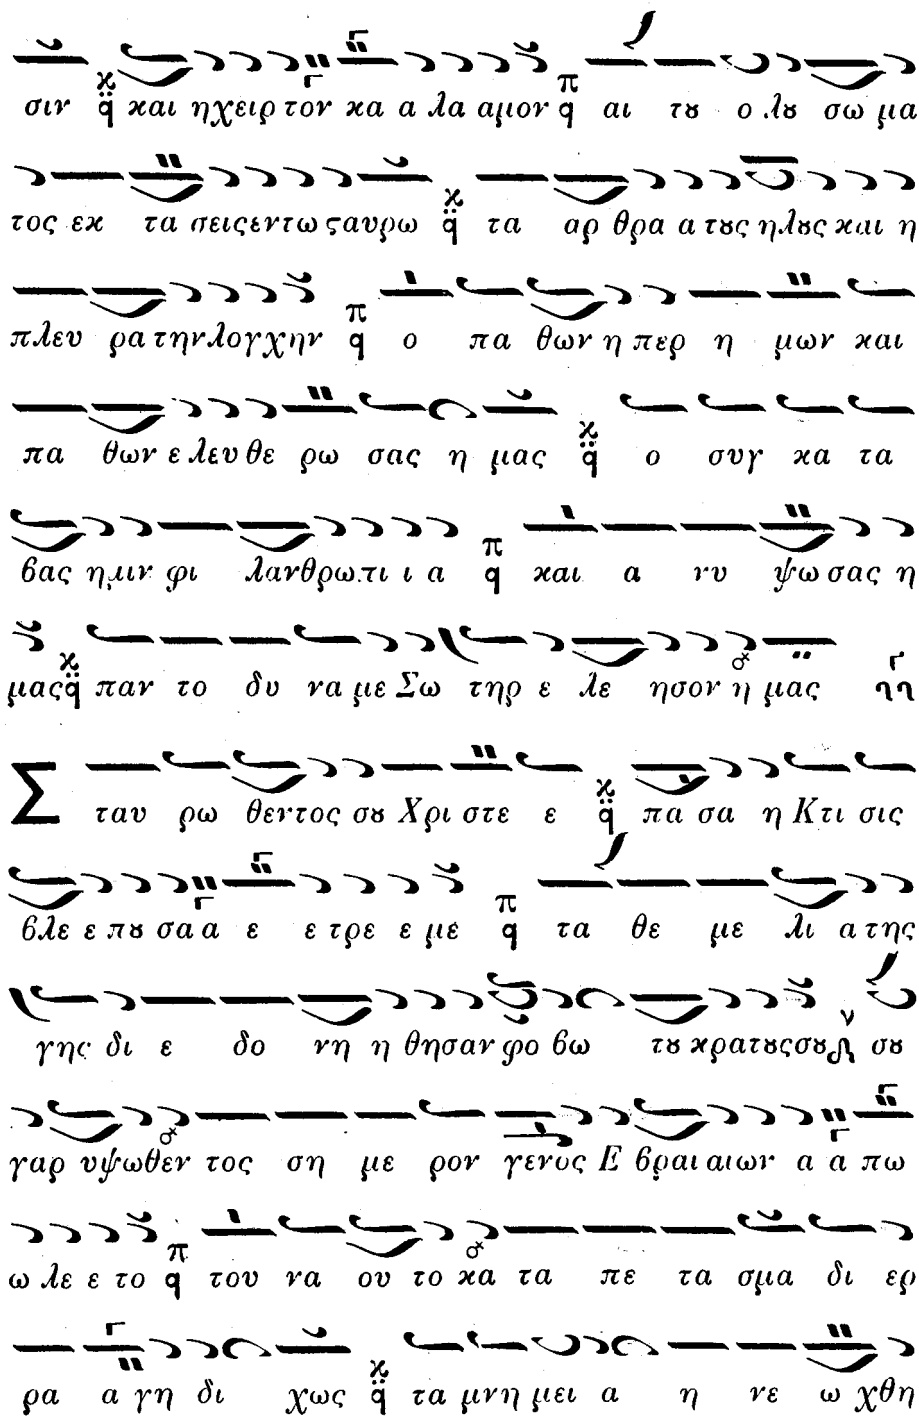 σιν και ηχειρ τον κα α λα αμον αι τȣ ο λȣ σω μα
τος εκ τα σειςεντω ϛαυρω τα αρ θρα α τȣς ηλȣς και η
πλευ ρα την λογχην ο πα θων η περ η μων και
πα θων ε λευ θε ρω σας η μας ο συγ κα τα
βας ημιν φι λανθρωπι ι α και α νυ ψω σας η
μας παν το δυ να με Σω τηρ ε λε ησον η μας
Σ ταυ ρω θεντος σȣ Χρι στε ε πα σα η Κτι σις
βλε ε πȣ σα α ε ε τρε ε με τα θε με λι α της
γης δι ε δο νη η θησαν φο βω τȣ κρατȣςσȣ σȣ
γαρ υψωθεν τος ση με ρον γενȣς Ε βραι αιων α α πω
ω λε ε το του να ου το κα τα πε τα σμα δι ερ
ρα α γη δι χως τα μνη μει α η νε ω χθη